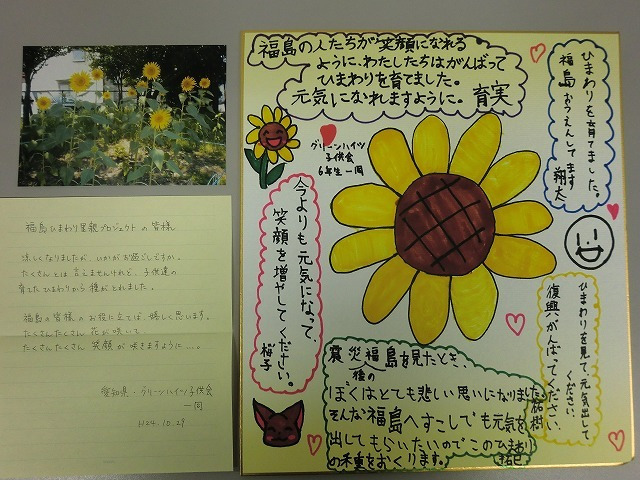 福島ひまわり里親プロジェクトの皆様
涼しくなりましたが、いかがお過ごしですか。
たくさんとは言えませんけれど、子供達の
育てたひまわりから種がとれました。
福島の皆様のお役に立てば、嬉しく思います。
たくさんたくさん 花が咲いて、
たくさんたくさん 笑顔が咲きますように…。
愛知県・グリーンハイツ子供会
一同
H24.10.29
福島の人たちが笑顔になれる
ように、わたしたちはがんばって
ひまわりを育てました。
元気になれますように。育実
グリーンハイツ
子供会
6年生一同
ひまわりを育てました。
福島おうえんしてます
翔太
今よりも元気になって、
笑顔を増やしてください。
桜子
ひまわりを見て、元気出して
ください。
復興、がんばってください。
祐樹
震災後の福島を見たとき、
ぼくはとても悲しい思いになりました。
そんな福島へすこしでも元気を
出してもらいたいのでこのひまわり
の種をおくります。
拓己